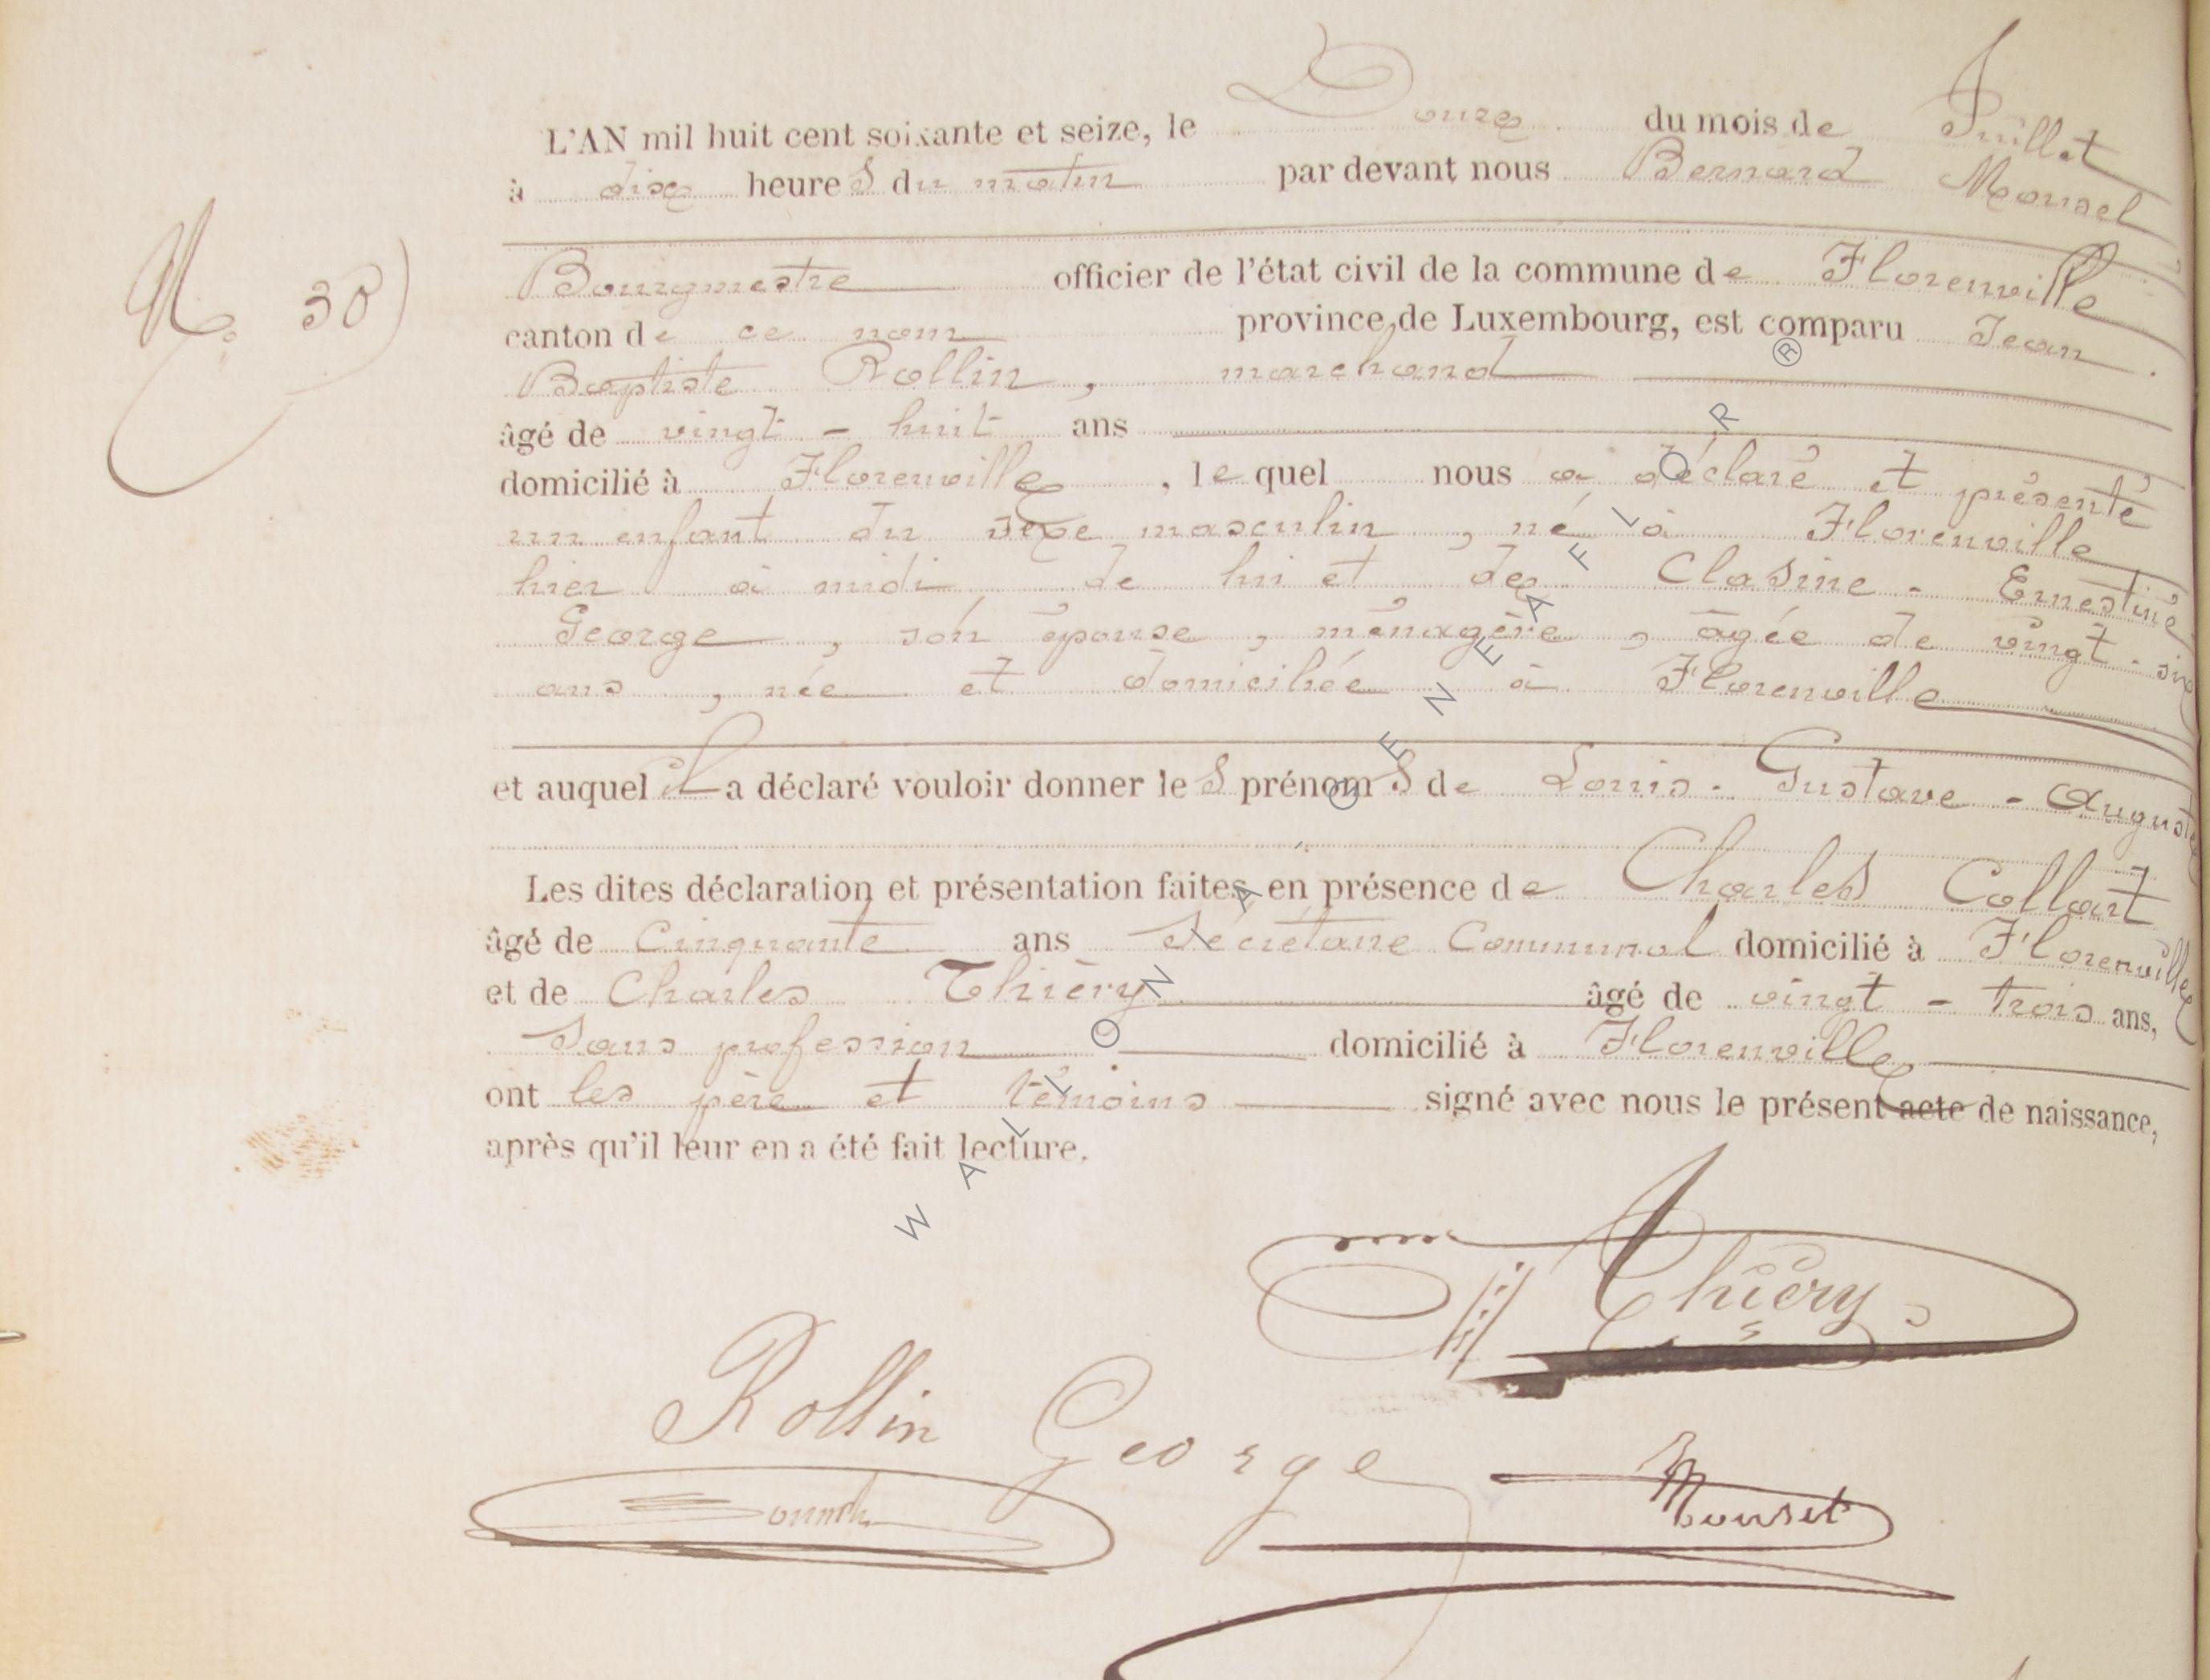 L'AN mil huit cent soixante et seize, le Douze du mois de Juillet
à dix heures du matin par devant nous Bernard Mousel
Bourgmestre officier de l'état civil de la commune de Florenville
N° 38)
canton de ce nom province de Luxembourg, est comparu Jean
Baptiste Rollin, marchand
âgé de vingt-huit ans
domicilié à Florenville, lequel nous a déclaré et présenté
un enfant du sexe masculin, né à Florenville
hier à midi de lui et de Clasine-Ernestine
George, son épouse, ménagère, âgée de vingt-six
ans, née et domiciliée à Florenville
et auquel il a déclaré vouloir donner les prénoms de Louis-Gustave-Auguste
Les dites déclaration et présentation faites en présence de Charles Collart
âgé de Cinquante ans Secrétaire Communal domicilié à Florenville
et de Charles Thiéry âgé de vingt-trois ans,
Sans profession domicilié à Florenville
ont les père et témoins signé avec nous le présent acte de naissance,
après qu'il leur en a été fait lecture.
Thiéry
Rollin George
Mousel
WALLONIA GENEAFLOR ®